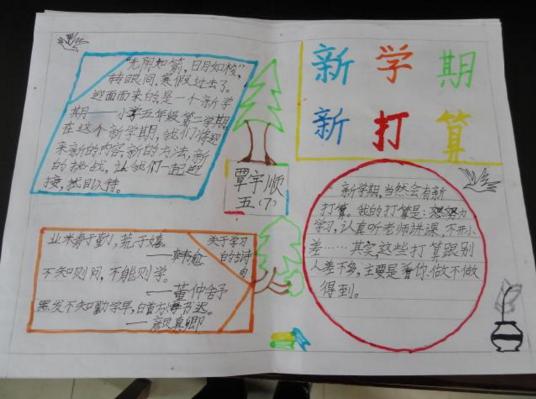 “光阴如箭，日月如梭”，
转眼间，寒假过去了。
迎面而来的是一个新学
期——小学五年级第二学期
在这个新学期，我们将迎
来新的内容，新的方法，新
的挑战，让我们一起迎
接，拭目以待。
新学期
新打算
覃宇顺
五(7)
业精于勤，荒于嬉
——韩愈
关于学习
的古诗
句
不知则问，不能则学。
——董仲舒
黑发不知勤学早，白首方悔读书迟。
——颜真卿
新学期，当然会有新
打算，我的打算是：努力
学习，认真听老师讲课，不开小
差……其实这些打算跟别
人差不多，主要是看你做不做
得到。